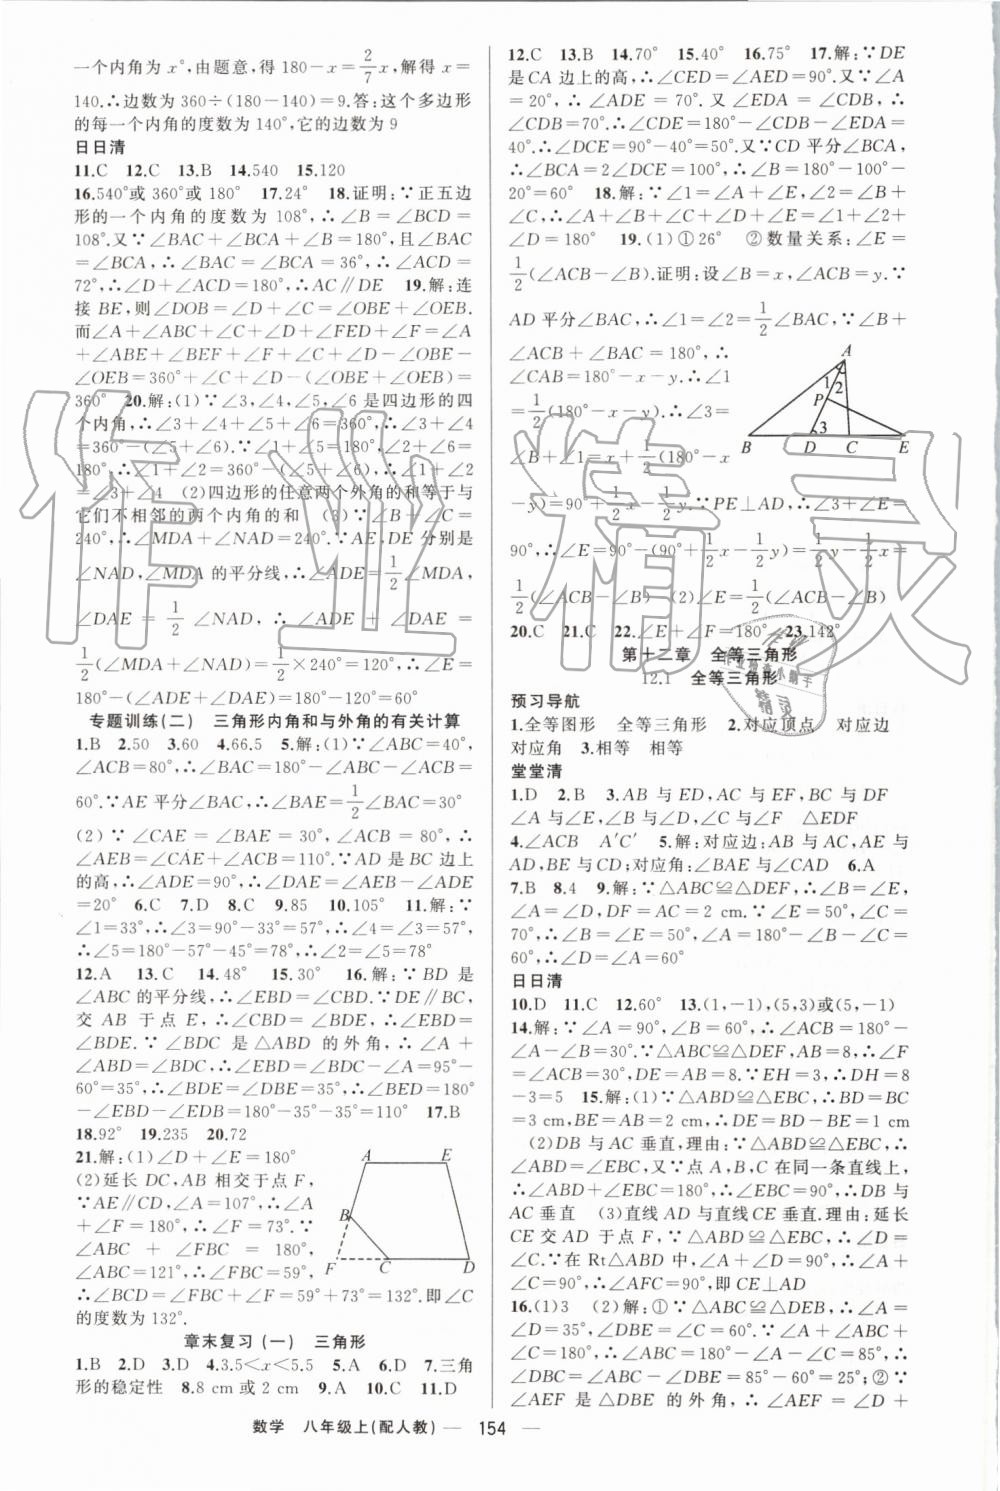 一个内角为 x°,由题意,得 180－x＝2/7x,解得 x＝
140.∴边数为 360÷(180－140)＝9.答:这个多边形
的每一个内角的度数为 140°,它的边数为 9
日日清
11.C 12.C 13.B 14.540 15.120
16.540°或 360°或 180° 17.24° 18.证明:∵正五边
形的一个内角的度数为 108°,∴∠B＝∠BCD＝
108°.又∵∠BAC＋∠BCA＋∠B＝180°,且∠BAC
＝∠BCA,∴∠BAC＝∠BCA＝36°,∴∠ACD＝
72°,∴∠D＋∠ACD＝180°,∴AC∥DE 19.解:连
接 BE,则∠DOB＝∠D＋∠C＝∠OBE＋∠OEB.
而∠A＋∠ABC＋∠C＋∠D＋∠FED＋∠F＝∠A
＋∠ABE＋∠BEF＋∠F＋∠C＋∠D－∠OBE－
∠OEB＝360°＋∠C＋∠D－(∠OBE＋∠OEB)＝
360° 20.解:(1)∵∠3,∠4,∠5,∠6 是四边形的四
个内角,∴∠3＋∠4＋∠5＋∠6＝360°,∴∠3＋∠4
＝360°－(∠5＋∠6).∵∠1＋∠5＝180°,∠2＋∠6＝
180°,∴∠1＋∠2＝360°－(∠5＋∠6),∴∠1＋∠2
＝∠3＋∠4 (2)四边形的任意两个外角的和等于与
它们不相邻的两个内角的和 (3)∵∠B＋∠C＝
240°,∴∠MDA＋∠NAD＝240°.∵AE,DE 分别是
∠NAD,∠MDA 的平分线,∴∠ADE＝1/2∠MDA,
∠DAE ＝ 1/2 ∠NAD, ∴ ∠ADE ＋ ∠DAE ＝
1/2(∠MDA＋∠NAD)＝1/2×240°＝120°,∴∠E＝
180°－(∠MDA＋∠NAD)＝180°－120°＝60°
专题训练(二) 三角形内角和与外角的有关计算
1.B 2.50 3.60 4.66.5 5.解:(1)∵∠ABC＝40°,
∠ACB＝80°,∴∠BAC＝180°－∠ABC－∠ACB＝
60°.∵AE 平分∠BAC,∴∠BAE＝1/2∠BAC＝30°
(2) ∵ ∠CAE ＝ ∠BAE ＝ 30°, ∠ACB ＝ 80°, ∴
∠AEB＝∠CAE＋∠ACB＝110°.∵AD 是 BC 边上
的高,∴∠ADE＝90°,∴∠DAE＝∠AEB－∠ADE
＝20° 6.C 7.D 8.C 9.85 10.105° 11.解:∵
∠1＝33°,∴∠3＝90°－33°＝57°,∴∠4＝∠3＝57°,
∴∠5＝180°－57°－45°＝78°,∴∠2＝∠5＝78°
12.A 13.C 14.48° 15.30° 16.解:∵BD 是
∠ABC 的平分线,∴∠EBD＝∠CBD.∵DE∥BC,
交 AB 于点 E,∴∠CBD＝∠BDE,∴∠EBD＝
∠BDE.∵∠BDC 是△ABD 的外角,∴∠A＋
∠ABD＝∠BDC,∴∠EBD＝∠BDC－∠A＝95°－
60°＝35°,∴∠BDE＝∠DBE＝35°,∴∠BED＝180°
－∠EBD－∠EDB＝180°－35°－35°＝110° 17.B
18.92° 19.235 20.72
21.解:(1)∠D＋∠E＝180°
(2)延长 DC,AB 相交于点 F,
∵AE∥CD,∠A＝107°,∴∠A
＋∠F＝180°,∴∠F＝73°.∵
∠ABC ＋ ∠FBC ＝ 180°,
∠ABC＝121°,∴∠FBC＝59°,
∴∠BCD＝∠FBC＋∠F＝59°＋73°＝132°.即∠C
的度数为 132°.
A E
B
F C D
章末复习(一) 三角形
1.B 2.D 3.D 4.3.5＜x＜5.5 5.A 6.D 7.三角
形的稳定性 8.8 cm或 2 cm 9.A 10.C 11.D
12.C 13.B 14.70° 15.40° 16.75° 17.解:∵DE
是 CA 边上的高,∴∠CED＝∠AED＝90°.又∵∠A
＝20°,∴∠ADE ＝ 70°.又∠EDA ＝∠CDB,∴
∠CDB＝70°.∴∠CDE＝180°－∠CDB－∠EDA＝
40°.∴∠DCE＝90°－40°＝50°.又∵CD 平分∠BCA,
∴∠BCA＝2∠DCE＝100°,∴∠B＝180°－100°－
20°＝60° 18.解:∵∠1＝∠A＋∠E,∠2＝∠B＋
∠C,∴∠A＋∠B＋∠C＋∠D＋∠E＝∠1＋∠2＋
∠D＝180° 19.(1)①26° ②数量关系:∠E＝
1/2(∠ACB－∠B).证明:设∠B＝x,∠ACB＝y.∵
AD 平分∠BAC,∴∠1＝∠2＝1/2∠BAC,∵∠B＋
∠ACB＋∠BAC＝180°,∴
∠CAB＝180°－x－y.∴∠1
＝1/2(180°－x－y).∴∠3＝
∠B＋∠1＝x＋1/2(180°－x
－y)＝90°＋1/2x－1/2y.∵PE⊥AD,∴∠3＋∠E＝
90°,∴∠E＝90°－(90°＋1/2x－1/2y)＝1/2y－1/2x＝
1/2(∠ACB－∠B) (2)∠E＝1/2(∠ACB－∠B)
A
1 2
P
3
B D C E
20.C 21.C 22.∠E＋∠F＝180° 23.142°
第十二章 全等三角形
12.1 全等三角形
预习导航
1.全等图形 全等三角形 2.对应顶点 对应边
对应角 3.相等 相等
堂堂清
1.D 2.B 3.AB 与 ED,AC 与 EF,BC 与 DF
∠A 与∠E,∠B 与∠D,∠C 与∠F △EDF
4.∠ACB A′C′ 5.解:对应边:AB 与 AC,AE 与
AD,BE 与 CD;对应角:∠BAE 与∠CAD 6.A
7.B 8.4 9.解:∵△ABC≌△DEF,∴∠B＝∠E,
∠A＝∠D,DF＝AC＝2 cm.∵∠E＝50°,∠C＝
70°,∴∠B＝∠E＝50°,∠A＝180°－∠B－∠C＝
60°,∴∠D＝∠A＝60°
日日清
10.D 11.C 12.60° 13.(1,－1),(5,3)或(5,－1)
14.解:∵∠A＝90°,∠B＝60°,∴∠ACB＝180°－
∠A－∠B＝30°.∵△ABC≌△DEF,AB＝8,∴∠F
＝∠ACB＝30°,DE＝AB＝8.∵EH＝3,∴DH＝8
－3＝5 15.解:(1)∵△ABD≌△EBC,∴BD＝BC
＝3 cm,BE＝AB＝2 cm,∴DE＝BD－BE＝1 cm
(2)DB 与 AC 垂直,理由:∵△ABD≌△EBC,∴
∠ABD＝∠EBC.又∵点 A,B,C 在同一条直线上,
∴∠ABD＋∠EBC＝180°,∴∠EBC＝90°,∴DB 与
AC 垂直 (3)直线 AD 与直线 CE 垂直.理由:延长
CE 交 AD 于点 F,∵△ABD≌△EBC,∴∠D＝
∠C.∵在 Rt△ABD 中,∠A＋∠D＝90°,∴∠A＋
∠C＝90°,∴∠AFC＝90°,即 CE⊥AD
16.(1)3 (2)解:①∵△ABC≌△DEB,∴∠A＝
∠D＝35°,∠DBE＝∠C＝60°,∵∠A＋∠ABC＋
∠C＝180°,∴∠ABC＝180°－∠A－∠C＝85°,∴
∠DBC＝∠ABC－∠DBE＝85°－60°＝25°;②∵
∠AEF 是△DBE 的外角,∴∠AEF ＝ ∠D ＋
数学 八年级上(配人教) — 154 —
作业精灵